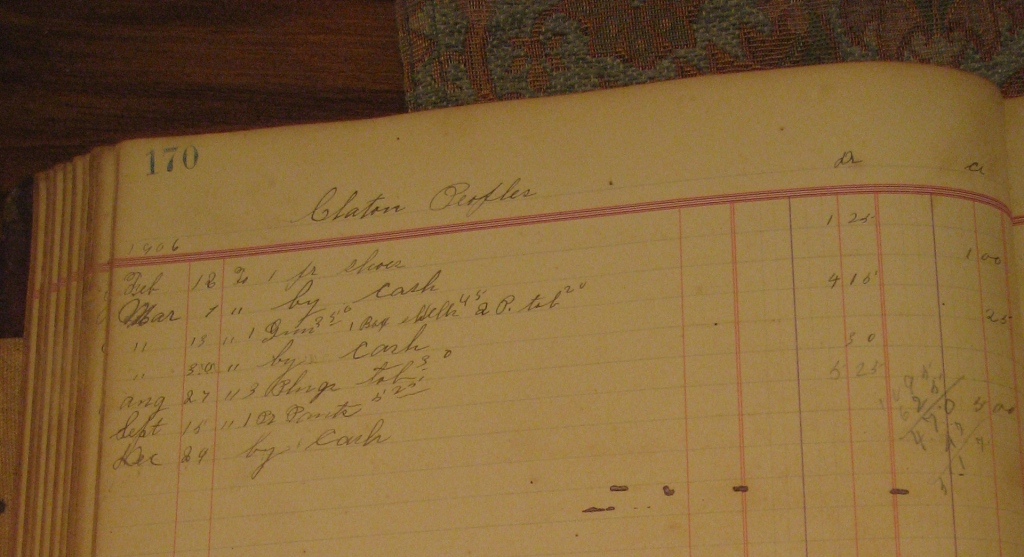 170
Dr Cr
Claton Profles
1906
Feb 18 To 1 pr shoes 1 25
Mar 7 " by cash 1 00
" 15 " 1 350 1 Box 45 2 P. tob 20 4 15
" 30 " by cash 25
Aug 27 " 3 Plugs tob 30 30
Sept 15 " 1 Pr Pants 525 5 25
Dec 24 by cash 5 00